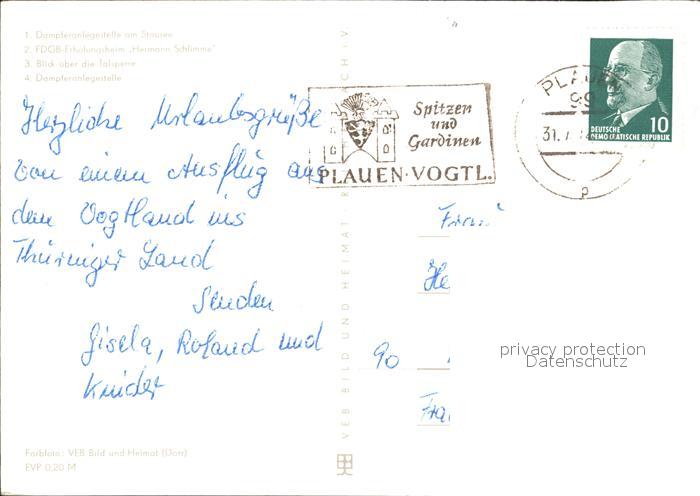 1. Dampferanlegestelle am Stausee
2. FDGB-Erholungsheim „Hermann Schlimme"
3. Blick über die Talsperre
4. Dampferanlegestelle
Herzliche Urlaubsgrüße
von einem Ausflug aus
dem Vogtland ins
Thüringer Land
senden
Gisela, Roland und
Kinder
Farbfoto: VEB Bild und Heimat (Dörr)
EVP 0,20 M
VEB BILD UND HEIMAT
Spitzen
und
Gardinen
PLAUEN·VOGTL.
PLAUEN
99
31.7
p
10
DEUTSCHE
DEMOKRATISCHE REPUBLIK
Frau
He
90
Fra
privacy protection
Datenschutz